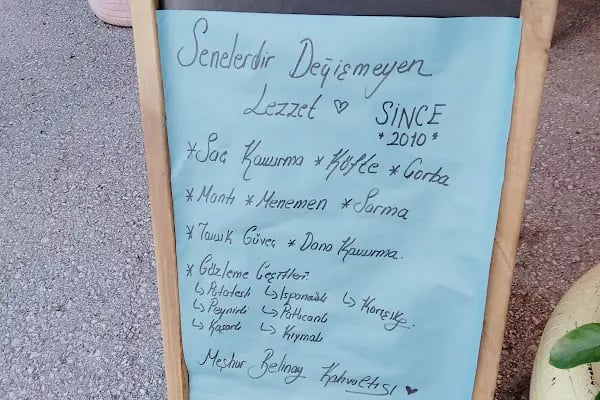 Senelerdir Değişmeyen
Lezzet ♡ SİNCE
*2010*
*Saç Kavurma *Köfte *Çorba
*Mantı *Menemen *Sarma
*Tavuk Güveç *Dana Kavurma.
*Gözleme Çeşitleri
↳ Patatesli ↳ Ispanaklı ↳ Karışık.
↳ Peynirli ↳ Patlıcanlı
↳ Kaşarlı ↳ Kıymalı
Meşhur Belinay Kahvaltısı ♥